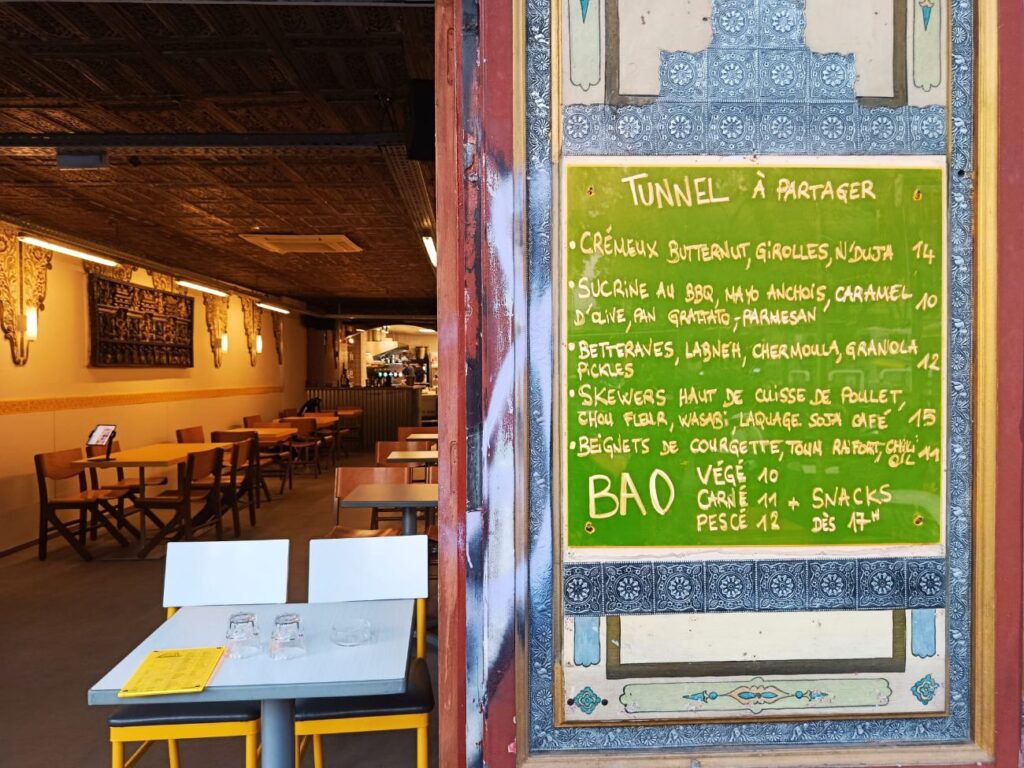 TUNNEL À PARTAGER
• CRÉMEUX BUTTERNUT, GIROLLES, N'DUJA 14
• SUCRINE AU BBQ, MAYO ANCHOIS, CARAMEL
D'OLIVE, PAN GRATTATO, PARMESAN 10
• BETTERAVES, LABNEH, CHERMOULA, GRANOLA
PICKLES 12
• SKEWERS HAUT DE CUISSE DE POULET,
CHOU FLEUR, WASABI, LAQUAGE SOJA CAFÉ 15
• BEIGNETS DE COURGETTE, TOUM RAIFORT, CHILI
OIL 11
BAO VÉGÉ 10
CARNÉ 11 + SNACKS
PESCÉ 12 DÈS 17H